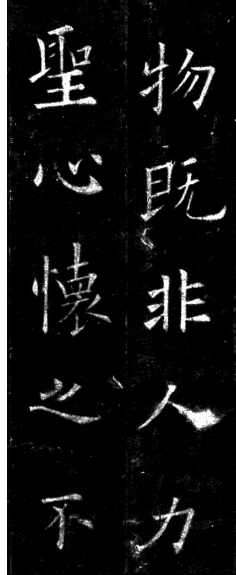 物既非人力
聖心懷之不